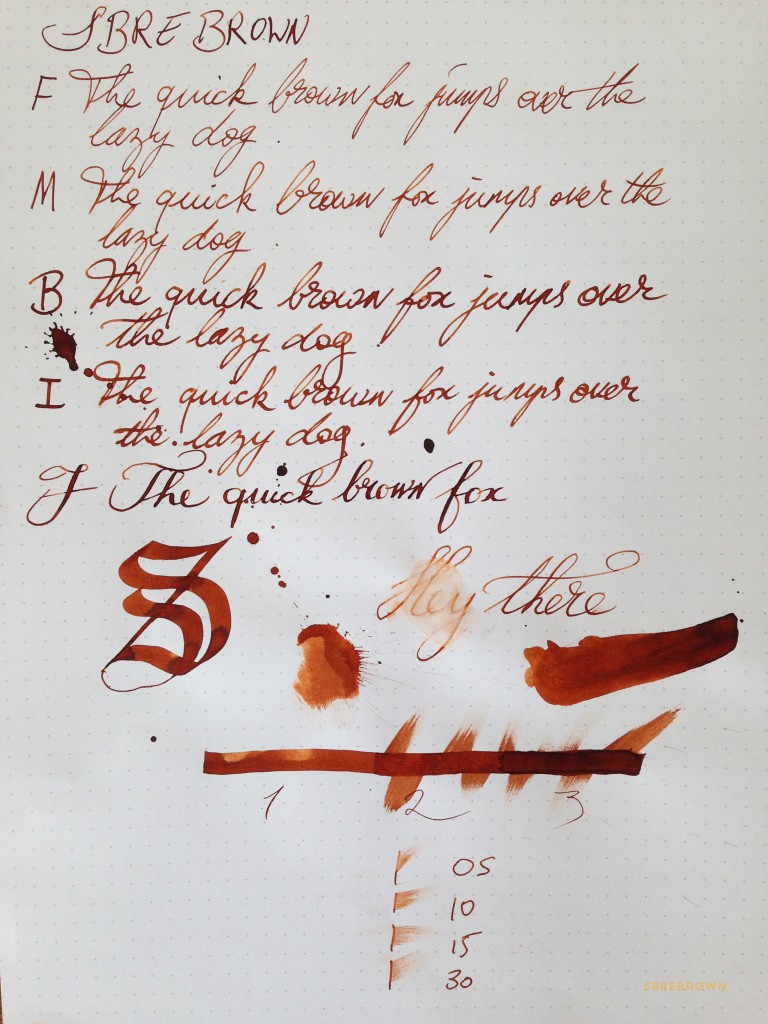 SBRE BROWN
F The quick brown fox jumps over the
lazy dog
M The quick brown fox jumps over the
lazy dog
B The quick brown fox jumps over
the lazy dog
I The quick brown fox jumps over
the lazy dog.
J The quick brown fox
S
Hey there
1 2 3
05
10
15
30
SBREBROWN